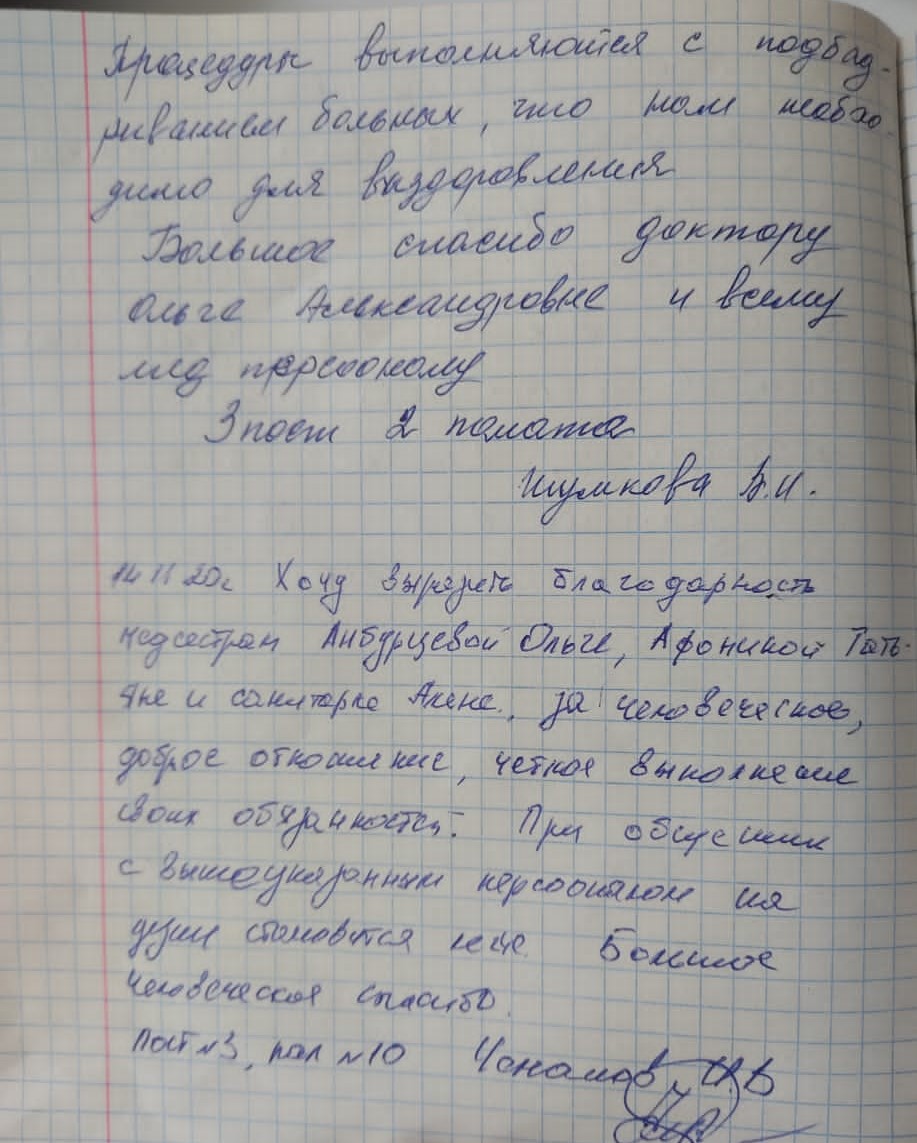 Процедуры выполняются с подбад-
риванием больных, что нам необхо-
димо для выздоровления
Большое спасибо доктору
Ольге Александровне и всему
мед персооналу
3 пост 2 палата
Шумкова В.И.
14 11 20г Хочу выразить благодарность
медсестрам Анбурцевой Ольге, Афониной Тать-
яне и санитарке Алене, за человеческое,
доброе отношение, четкое выполнение
своих обязанностей. При общении
с вышеуказанным персооналом на
душе становится легче. Большое
человеческое спасибо.
Пост №3, пал №10 И.В